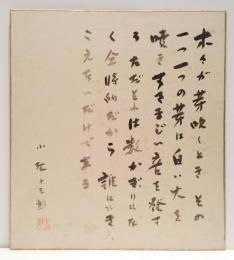 木々が芽吹くとき その
一つ一つの芽は白い火を
噴き すさまじい音を発す
る ただそれは数かぎりもな
く 時的だから 誰にもき
こえないだけである
小野十三郎